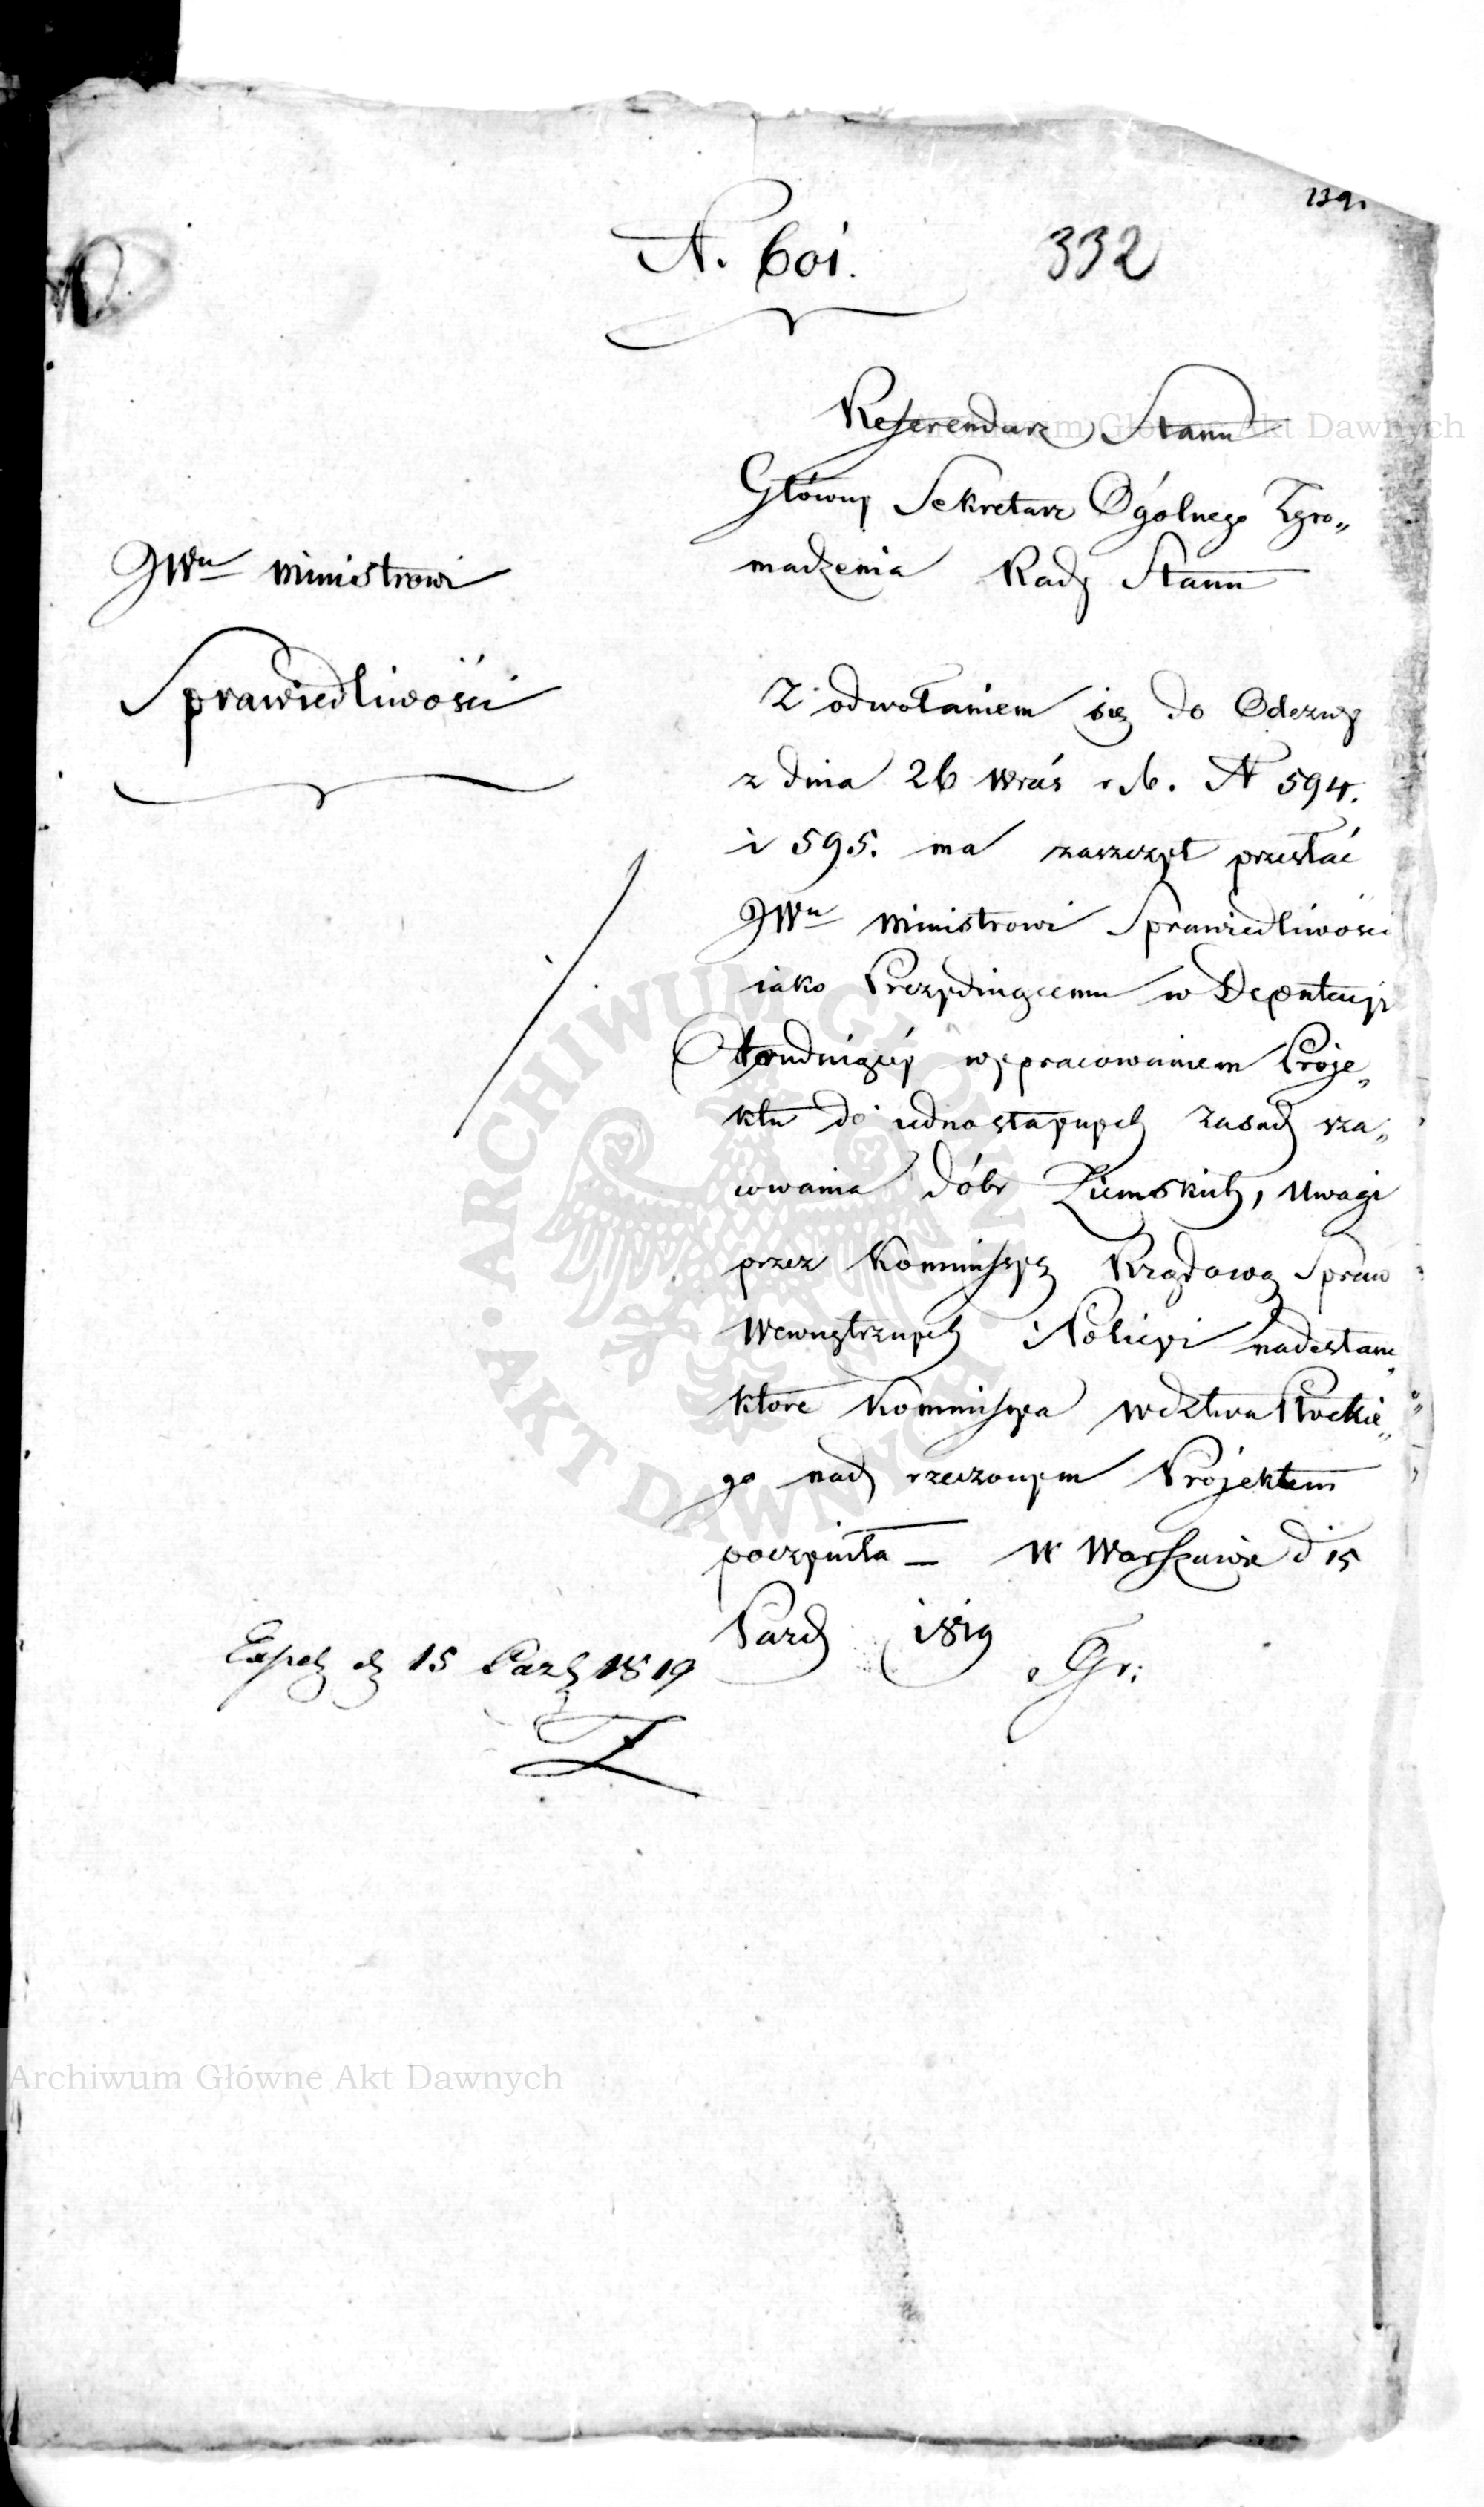 139.
N. 601.
332
Referendarz Stanu
Główny Sekretarz Ogólnego Zgro„
madzenia Rady Stanu
JWu Ministrowi
Sprawiedliwości
Z odwołaniem się do Odezwy
z dnia 26 Wrześ r. b. N 594.
i 595. ma zaszczyt przesłać
JWu Ministrowi Sprawiedliwości
iako Prezydującemu w Deputacyi
trudniącéy wypracowaniem Proje„
ktu do iednostaynych zasad sza„
cowania dóbr Ziemskich, Uwagi
przez Kommissyą Rządową Spraw
Wewnętrznych i Policyi nadesłane
które Kommissya Wdztwa Płockie„
go nad rzeczonym Projektem
poczyniła — W Warszawie d 15
Paźd 1819
Gr:
Exped d 15 Paźd 1819
Archiwum Główne Akt Dawnych
Archiwum Główne Akt Dawnych
ARCHIWUM GŁÓWNE AKT DAWNYCH